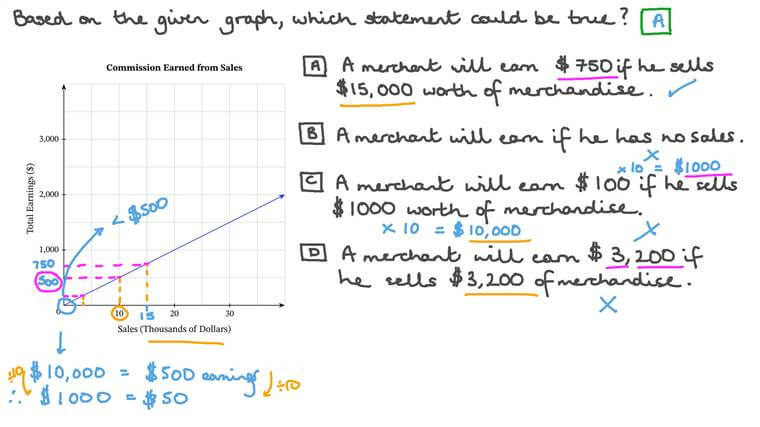 Based on the given graph, which statement could be true? A
Commission Earned from Sales
Total Earnings ($)
3,000
2,000
1,000
750
500
0
< $500
10
15
20
30
Sales (Thousands of Dollars)
÷10 $10,000 = $500 earnings ÷10
∴ $1000 = $50
A A merchant will earn $750 if he sells
$15,000 worth of merchandise. ✓
B A merchant will earn if he has no sales.
×
×10 = $1000
C A merchant will earn $100 if he sells
$1000 worth of merchandise.
×10 = $10,000 ×
D A merchant will earn $3,200 if
he sells $3,200 of merchandise.
×